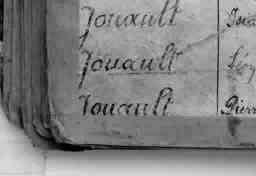 Jouault
Jouault
Jouault Pierr